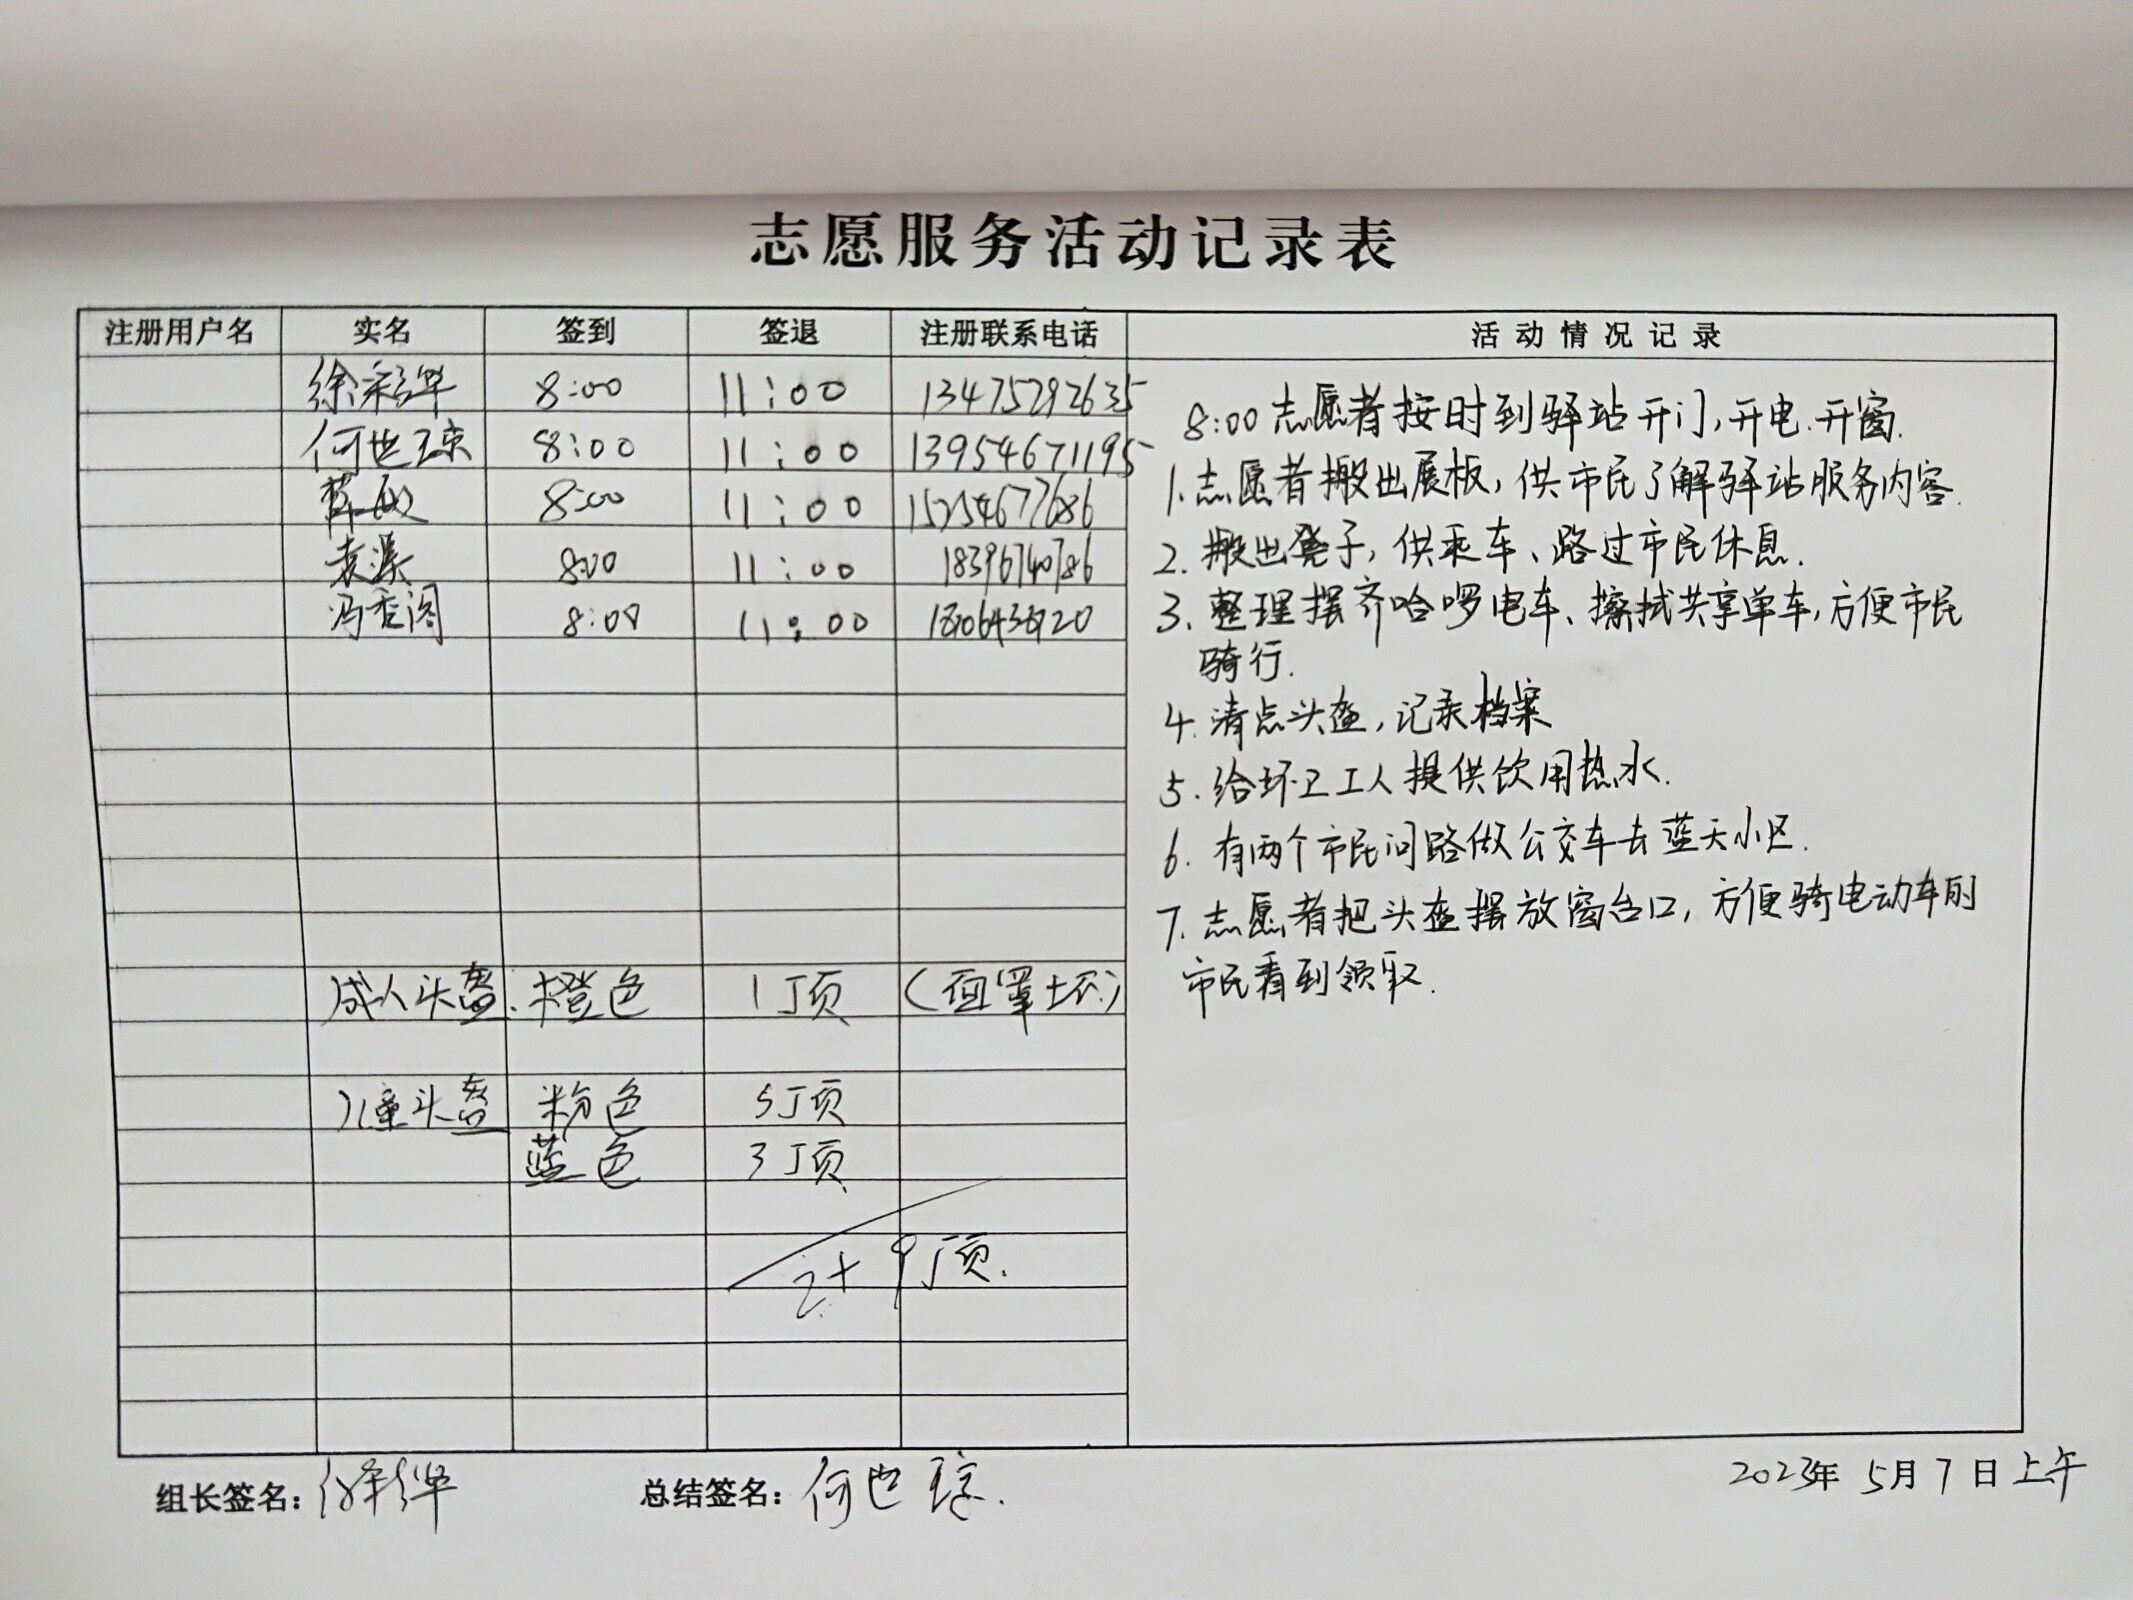 志愿服务活动记录表
注册用户名 实名 签到 签退 注册联系电话 活动情况记录
徐彩华 8:00 11:00 13475292635
何世琼 8:00 11:00 13954671195
薛敏 8:00 11:00 15254677686
袁溪 8:00 11:00 18396740786
冯香阁 8:00 11:00
成人头盔 橙色 1顶 (面罩坏)
儿童头盔 粉色 5顶
蓝色 3顶
9顶.
8:00志愿者按时到驿站开门,开电.开窗.
1.志愿者搬出展板,供市民了解驿站服务内容.
2.搬出凳子,供乘车、路过市民休息.
3.整理摆齐哈啰电车、擦拭共享单车,方便市民
骑行.
4.清点头盔,记录档案
5.给环卫工人提供饮用热水.
6.有两个市民问路做公交车去蓝天小区.
7.志愿者把头盔摆放窗台口,方便骑电动车的
市民看到领取.
组长签名:徐彩华 总结签名:何世琼. 2023年5月7日上午